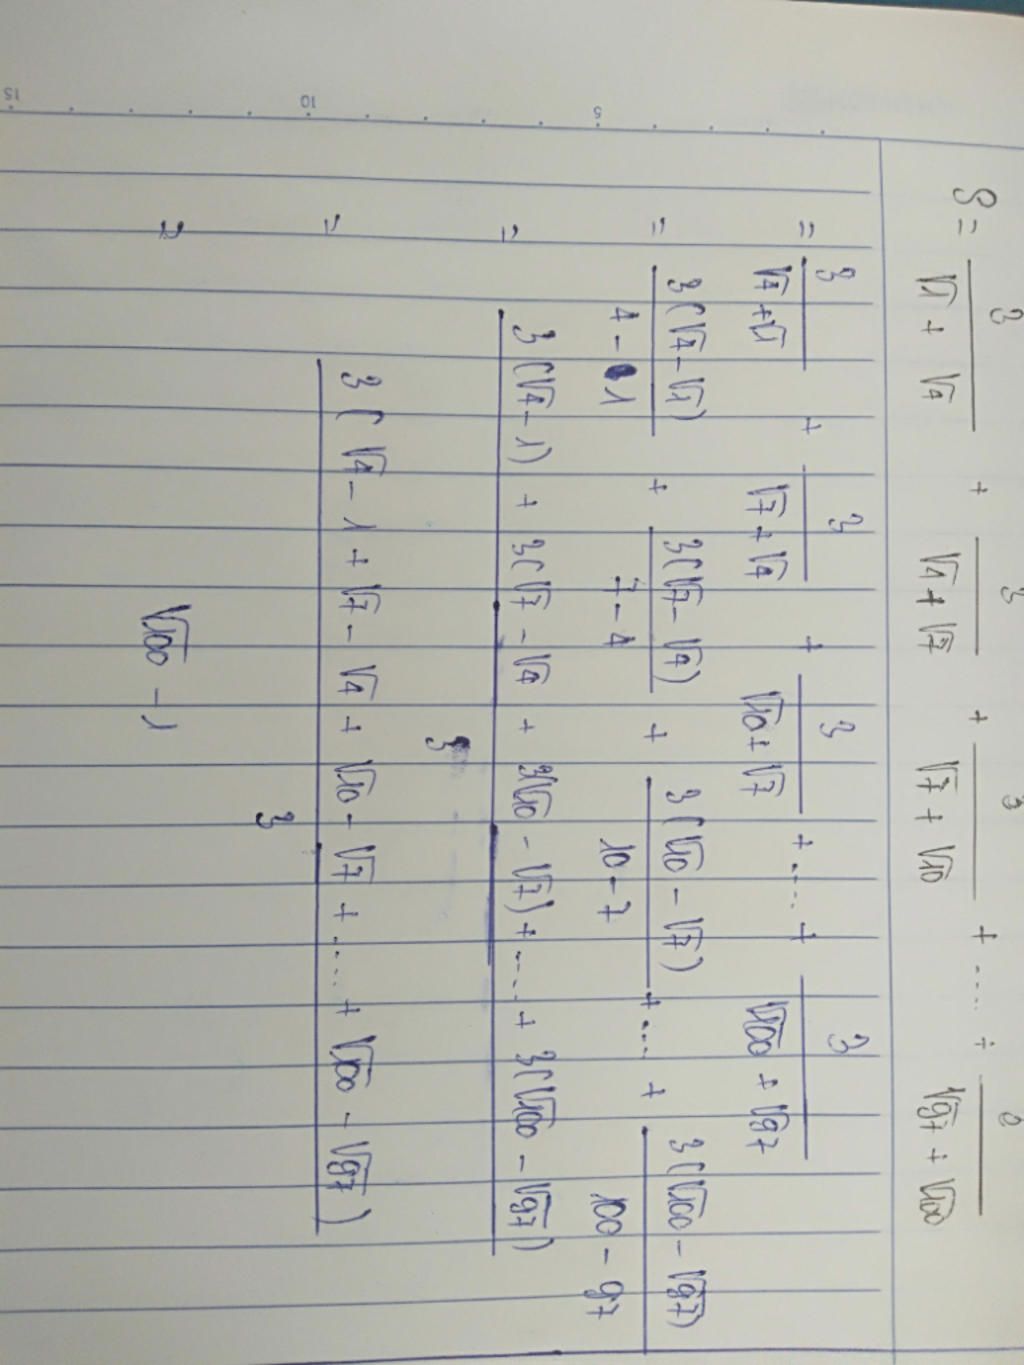 S = 3/(√1 + √4) + 3/(√4 + √7) + 3/(√7 + √10) + .... + 3/(√97 + √100)
= 3/(√4 + √1) + 3/(√7 + √4) + 3/(√10 + √7) + .... + 3/(√100 + √97)
= 3(√4 - √1)/(4 - 1) + 3(√7 - √4)/(7 - 4) + 3(√10 - √7)/(10 - 7) + ... + 3(√100 - √97)/(100 - 97)
= (3(√4 - 1) + 3(√7 - √4 + 3(√10 - √7) + .... + 3(√100 - √97))/3
= 3(√4 - 1 + √7 - √4 + √10 - √7 + .... + √100 - √97)/3
= √100 - 1
5
10
15